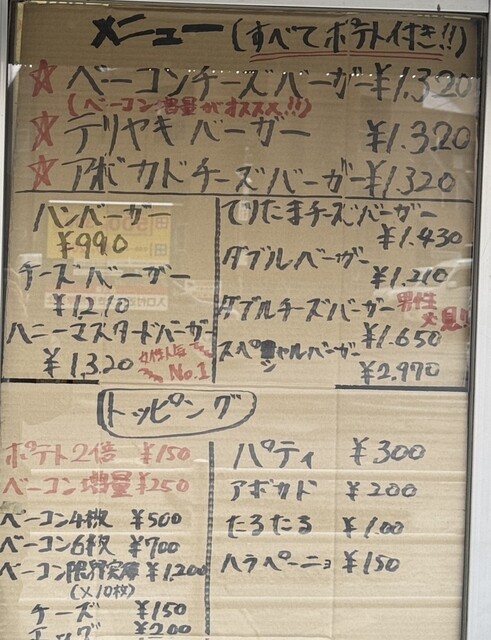 メニュー (すべてポテト付き!!)
☆ ベーコンチーズバーガー ¥1.320
(ベーコン増量がオススメ!!)
☆ テリヤキバーガー ¥1.320
☆ アボカドチーズバーガー ¥1320
ハンバーガー
¥990
チーズバーガー
¥1210
ハニーマスタードバーガー
¥1.320 女性人気 No.1
てりたまチーズバーガー
¥1.430
ダブルバーガー
¥1.210
ダブルチーズバーガー 男性
¥1.650 必見!!
スペシャルバーガー
¥2.970
トッピング
ポテト2倍 ¥150
ベーコン増量 ¥250
ベーコン4枚 ¥500
ベーコン6枚 ¥700
ベーコン限界突破 ¥1,200
(×10枚)
チーズ ¥150
エッグ ¥200
パティ ¥300
アボカド ¥200
たるたる ¥1.00
ハラペーニョ ¥150